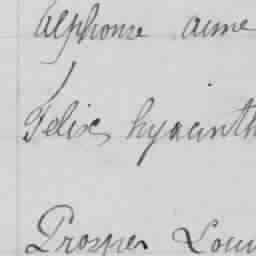 Alphonse aime
Felix, hyacinth
Prosper Loui